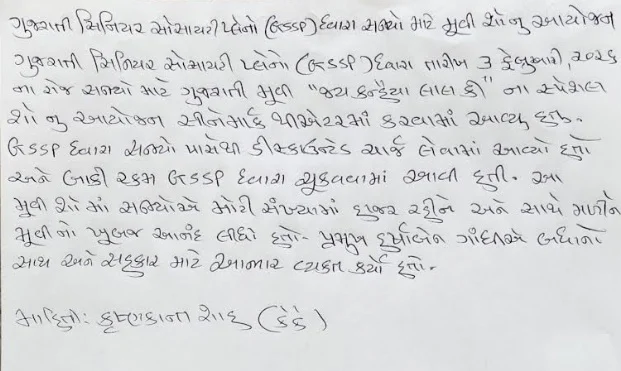 ગુજરાતી સિનિયર સોસાયટી પ્લેનો (GSSP) દ્વારા સભ્યો માટે મુવી શોનું આયોજન
ગુજરાતી સિનિયર સોસાયટી પ્લેનો (GSSP) દ્વારા તારીખ 3 ફેબ્રુઆરી, ૨૦૨૬
ના રોજ સભ્યો માટે ગુજરાતી મુવી "જય કનૈયા લાલ કી" ના સ્પેશલ
શો નું આયોજન સીનેમાર્ક થીએટરમાં કરવામાં આવ્યું હતું.
GSSP દ્વારા સભ્યો પાસેથી ડીસ્કાઉન્ટેડ ચાર્જ લેવામાં આવ્યો હતો
અને બાકી રકમ GSSP દ્વારા ચુકવવામાં આવી હતી. આ
મુવી શો માં સભ્યોએ મોટી સંખ્યામાં હાજર રહીને અને સાથે મળીને
મુવી નો ખુબજ આનંદ લીધો હતો. પ્રમુખ હર્ષાબેન ગાંધીએ બધાનો
સાથ અને સહકાર માટે આભાર વ્યક્ત કર્યો હતો.
માહિતી: કૃષ્ણકાન્ત શાહ (કેકે)